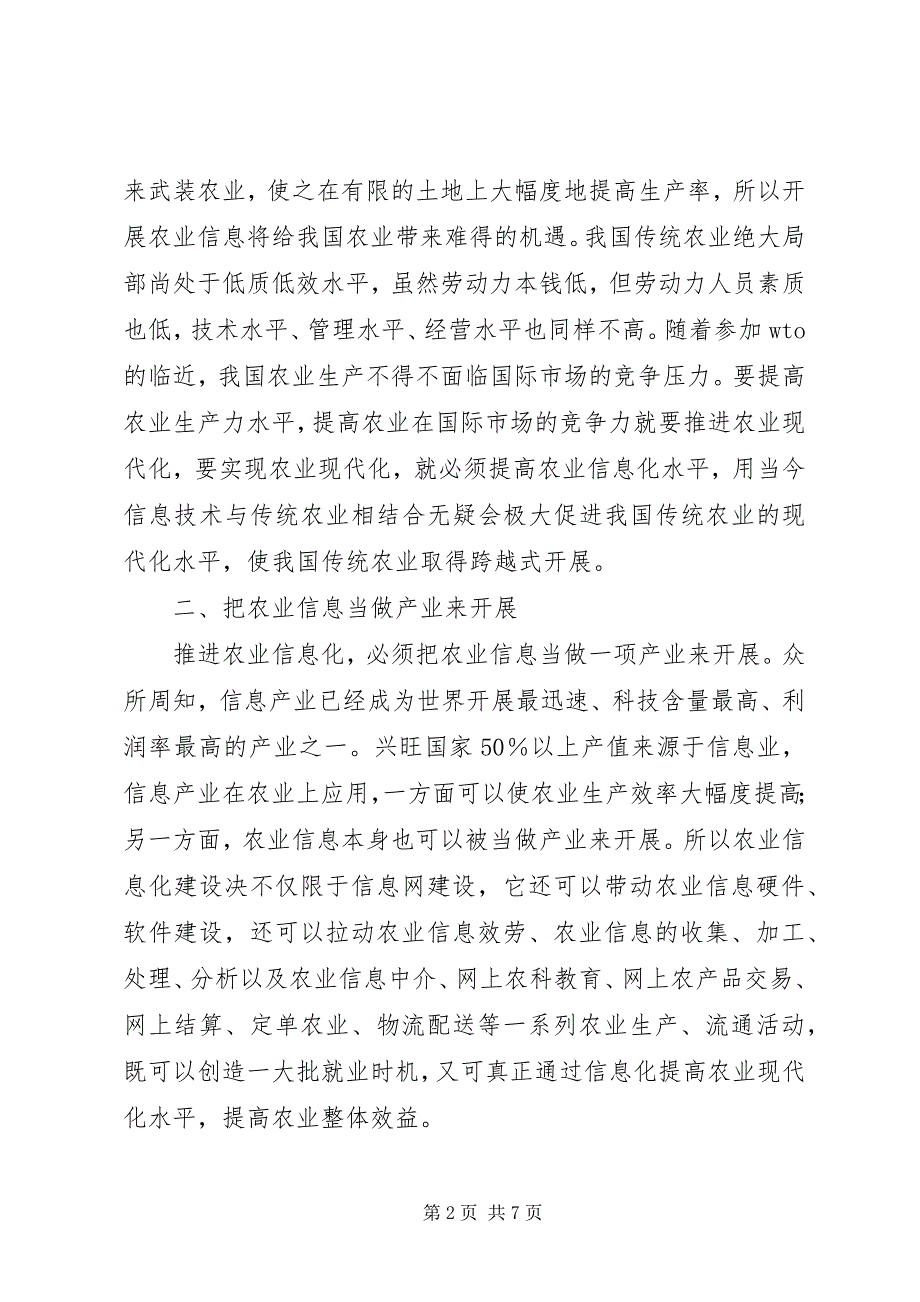 来武装农业，使之在有限的土地上大幅度地提高生产率，所以开
展农业信息将给我国农业带来难得的机遇。我国传统农业绝大局
部尚处于低质低效水平，虽然劳动力本钱低，但劳动力人员素质
也低，技术水平、管理水平、经营水平也同样不高。随着参加 wto
的临近，我国农业生产不得不面临国际市场的竞争压力。要提高
农业生产力水平，提高农业在国际市场的竞争力就要推进农业现
代化，要实现农业现代化，就必须提高农业信息化水平，用当今
信息技术与传统农业相结合无疑会极大促进我国传统农业的现
代化水平，使我国传统农业取得跨越式开展。
二、把农业信息当做产业来开展
推进农业信息化，必须把农业信息当做一项产业来开展。众
所周知，信息产业已经成为世界开展最迅速、科技含量最高、利
润率最高的产业之一。兴旺国家 50％以上产值来源于信息业，
信息产业在农业上应用，一方面可以使农业生产效率大幅度提高；
另一方面，农业信息本身也可以被当做产业来开展。所以农业信
息化建设决不仅限于信息网建设，它还可以带动农业信息硬件、
软件建设，还可以拉动农业信息效劳、农业信息的收集、加工、
处理、分析以及农业信息中介、网上农科教育、网上农产品交易、
网上结算、定单农业、物流配送等一系列农业生产、流通活动，
既可以创造一大批就业时机，又可真正通过信息化提高农业现代
化水平，提高农业整体效益。
第 2 页 共 7 页